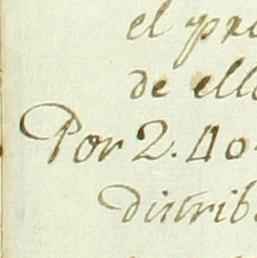 el pre
de ello
Por 2.40
distrib